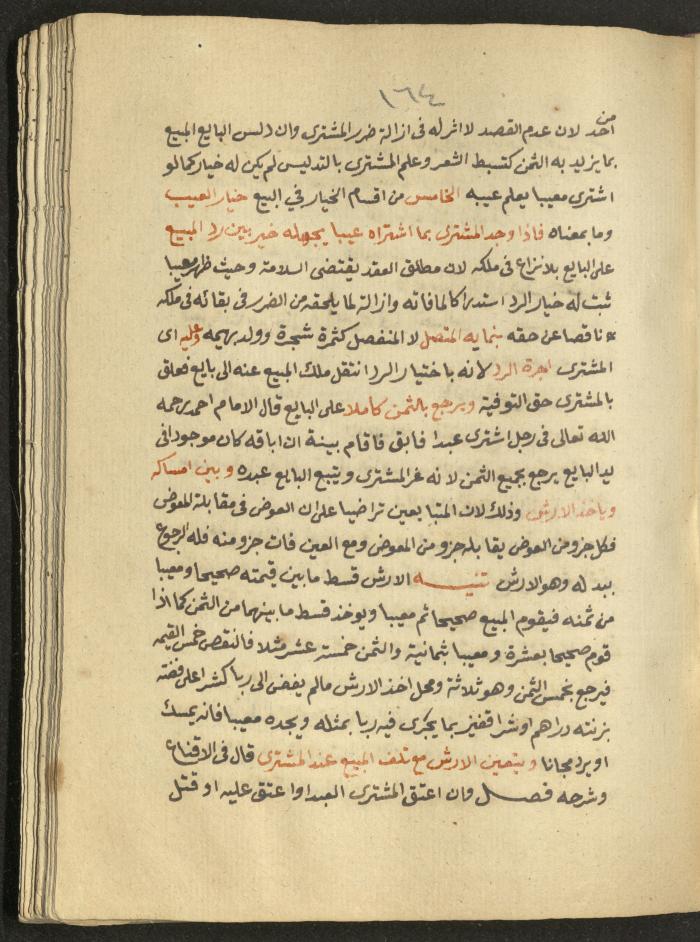 ١٦٤
من
احد لان عدم القصد لا اثر له فى ازالة ضرر المشترى وان دلس البايع المبيع
بما يزيد به الثمن كتسبط الشعر وعلم المشترى بالتدليس لم يكن له خيار كما لو
اشترى معيبا يعلم عيبه الخامس من اقسام الخيار في البيع خيار العيب
وما بمعناه فاذا وجد المشترى بما اشتراه عيبا يجهله خير بين رد المبيع
على البايع بلا نزاع فى ملكه لان مطلق العقد يقتضى السلامة وحيث ظهر معيبا
ثبت له خيار الرد استدراكا لما فاته وازالة لما يلحقه من الضرر فى بقائه فى ملكه
ناقصا عن حقه بنمايه المتصل لا المنفصل كثمرة شجرة وولد بهيمه وعليه اى
المشترى اجرة الرد لانه باختيار الرد انتقل ملك المبيع عنه الى بايع فعلق
بالمشترى حق التوفية ويرجع بالثمن كاملا على البايع قال الامام احمد رحمه
الله تعالى فى رجل اشترى عبدا فابق فاقام بينة ان اباقه كان موجودا فى
يد البايع يرجع بجميع الثمن لانه غر المشترى ويتبع البايع عبده وبين امساكه
وياخذ الارش وذلك لان المتبايعين تراضيا على ان العوض فى مقابلة المعوض
فكل جزو من العوض يقابله جزو من المعوض ومع العين فات جزو منه فله الرجوع
ببدله وهو الارش تنبيه الارش قسط ما بين قيمته صحيحا ومعيبا
من ثمنه فيقوم المبيع صحيحا ثم معيبا ويوخذ قسط ما بينهما من الثمن كما اذا
قوم صحيحا بعشرة ومعيبا بثمانية والثمن خمسة عشر مثلا فالنقص خمس القيمه
فيرجع بخمس الثمن وهو ثلاثة ومحل اخذ الارش مالم يفض الى ربا كشرا على فضة
بزنته دراهم او شرا قفيز بما يجرى فيه ربا بمثله ويجده معيبا فانه يمسك
او يرد مجانا ويتعين الارش مع تلف المبيع عند المشترى قال فى الاقناع
وشرحه فصل وان اعتق المشترى العبد او اعتق عليه او قتل